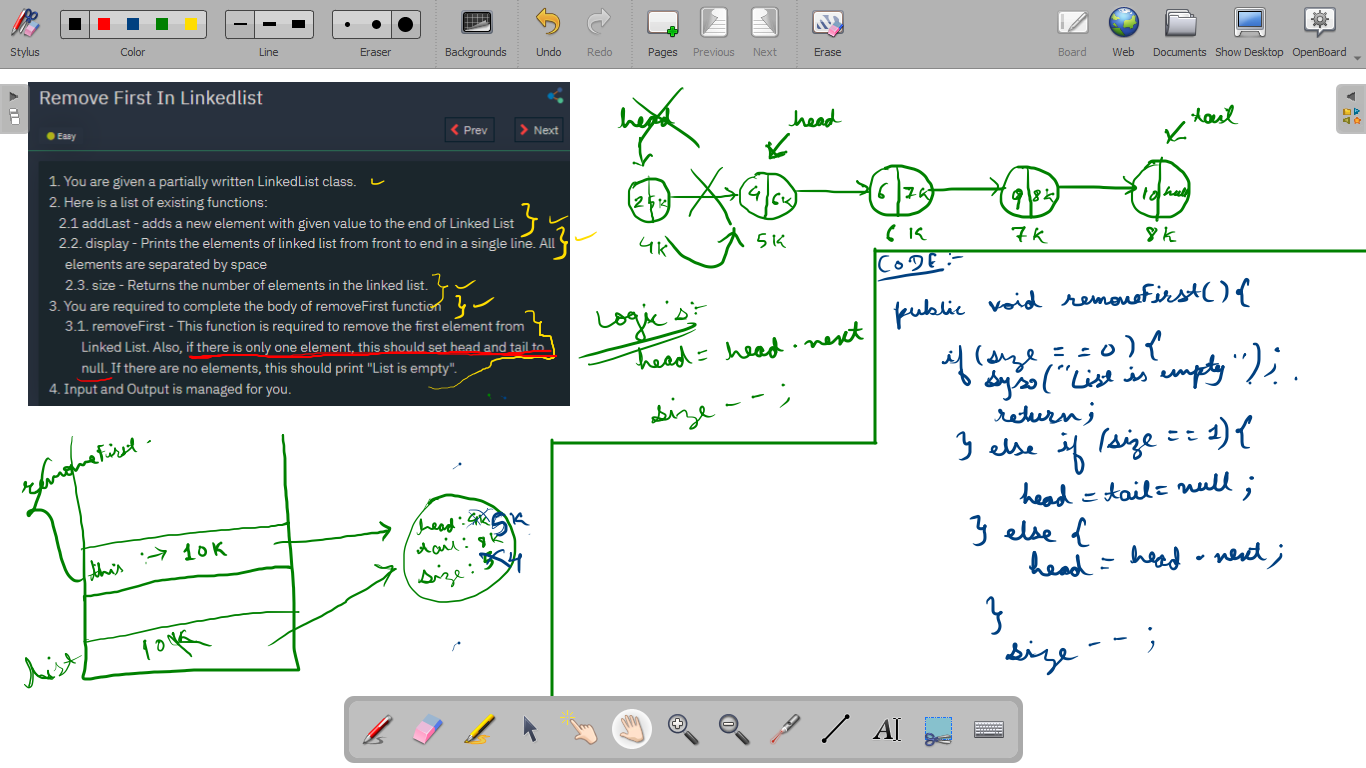 Stylus
Color
Line
Eraser
Backgrounds
Undo
Redo
Pages
Previous
Next
Erase
Board
Web
Documents
Show Desktop
OpenBoard
Remove First In Linkedlist
Easy
Prev
Next
1. You are given a partially written LinkedList class.
2. Here is a list of existing functions:
2.1 addLast - adds a new element with given value to the end of Linked List
2.2. display - Prints the elements of linked list from front to end in a single line. All
elements are separated by space
2.3. size - Returns the number of elements in the linked list.
3. You are required to complete the body of removeFirst function
3.1. removeFirst - This function is required to remove the first element from
Linked List. Also, if there is only one element, this should set head and tail to
null. If there are no elements, this should print "List is empty".
4. Input and Output is managed for you.
head
head
tail
2 5K
4 6K
6 7K
9 8K
10 null
4K
5K
6K
7K
8K
Logic's:-
head = head.next
size--;
CODE:-
public void removeFirst(){
if (size == 0) {
syso("List is empty");
return;
} else if (size == 1) {
head = tail = null;
} else {
head = head.next;
}
size--;
removeFirst
this :→ 10K
list
10K
head: 4K 5K
tail: 8K
size: 5 4
AI